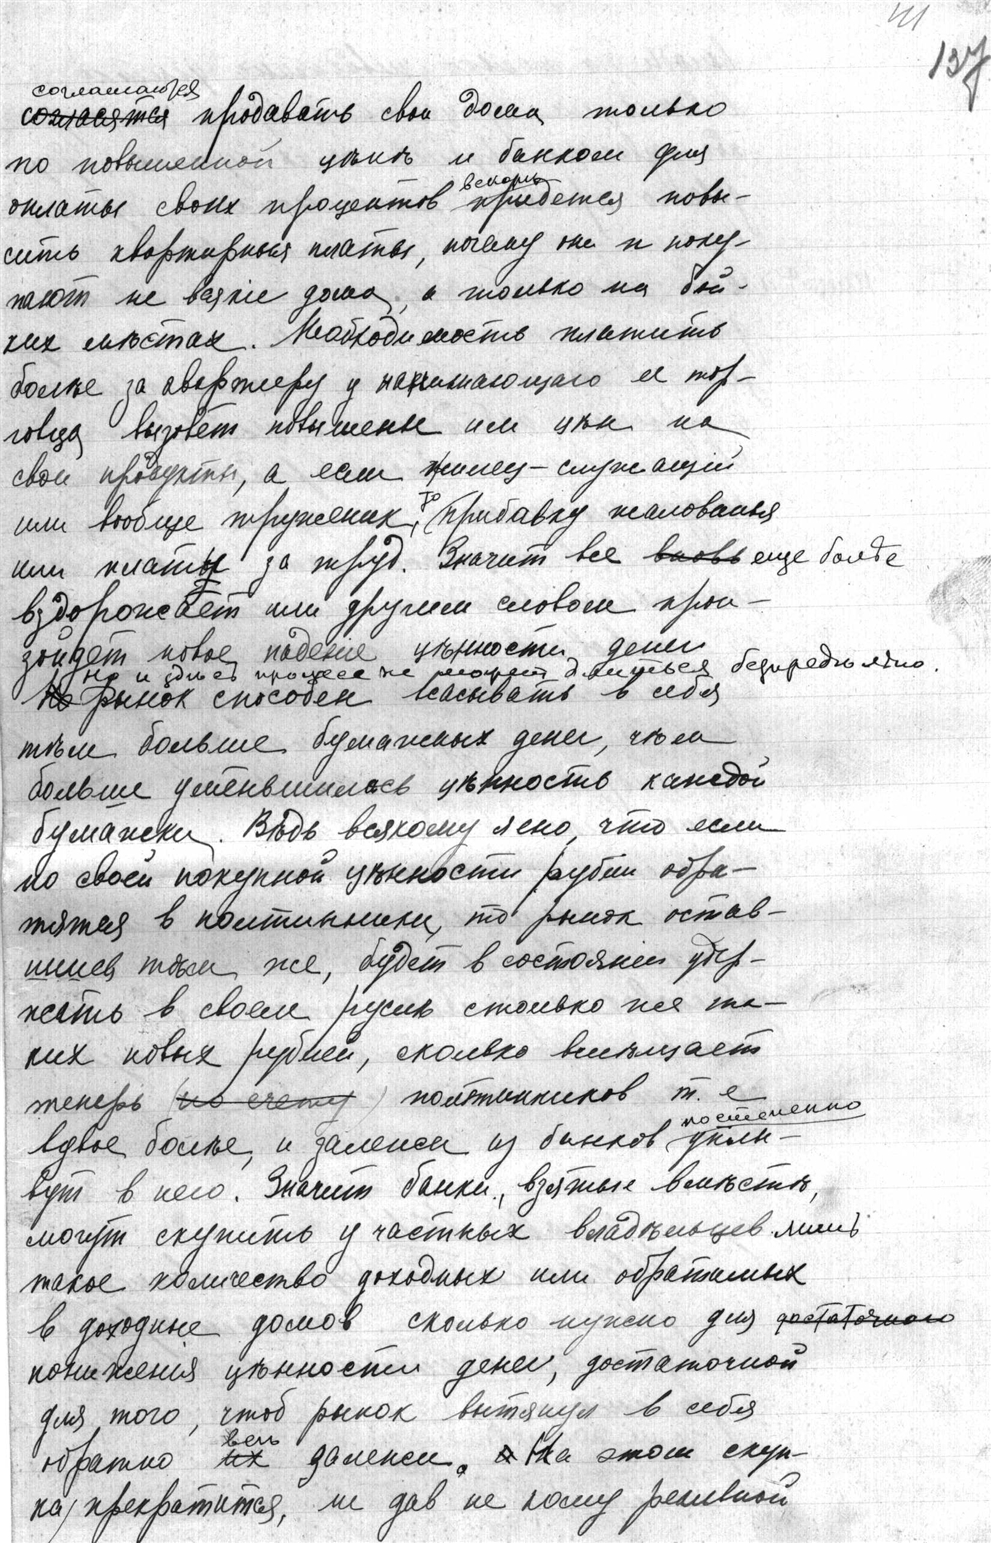 137
соглашаются
согласятся продавать свои дома только
по повышенной цѣнѣ и банкам для
оплаты своих процентов вскорѣ придется повы-
сить квартирныя платы, почему они и поку-
пают не всякіе дома, а только на бой-
ких мѣстах. Необходимость платить
болѣе за квартиру у нанимающаго ее тор-
говца вызовет повышеніе им цѣн на
свои продукты, а если жилец-служащій
или вообще труженик, то прибавку жалованья
или платы за труд. Значит все вновь еще болѣе
вздорожает или другим словом прои-
зойдет новое паденіе цѣнности денег
Но и здѣсь процесс не может длиться безпредѣльно.
Но Рынок способен всасывать в себя
тѣм больше бумажных денег, чѣм
больше уменьшилась цѣнность каждой
бумажки. Вѣдь всякому ясно, что если
по своей покупной цѣнности рубли обра-
тятся в полтинники, то рынок остав-
шись тѣм же, будет в состояніи удер-
жать в своем руслѣ столько же та-
ких новых рублей, сколько вмѣщает
теперь (по счету) полтинников т. е
вдвое болѣе, и залежи из банков постепенно уплы-
вут в него. Значит банки, взятые вмѣстѣ,
могут скупить у частных владѣльцев лишь
такое количество доходных или обратимых
в доходные домов сколько нужно для достаточного
пониженія цѣнности денег, достаточной
для того, чтоб рынок вытянул в себя
обратно их всѣ залежи. а На этом скуп-
ка прекратится, не дав не кому реальной